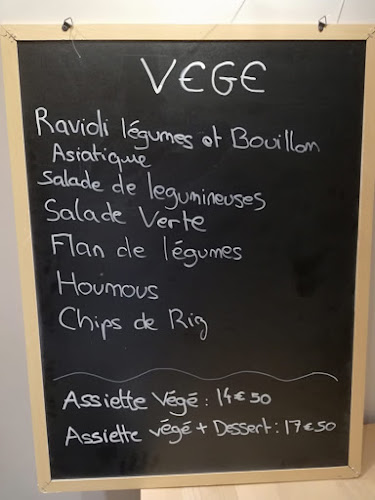 VEGE
Ravioli légumes et Bouillon
Asiatique
Salade de legumineuses
Salade Verte
Flan de légumes
Houmous
Chips de Riz
Assiette Végé : 14€50
Assiette végé + Dessert : 17€50